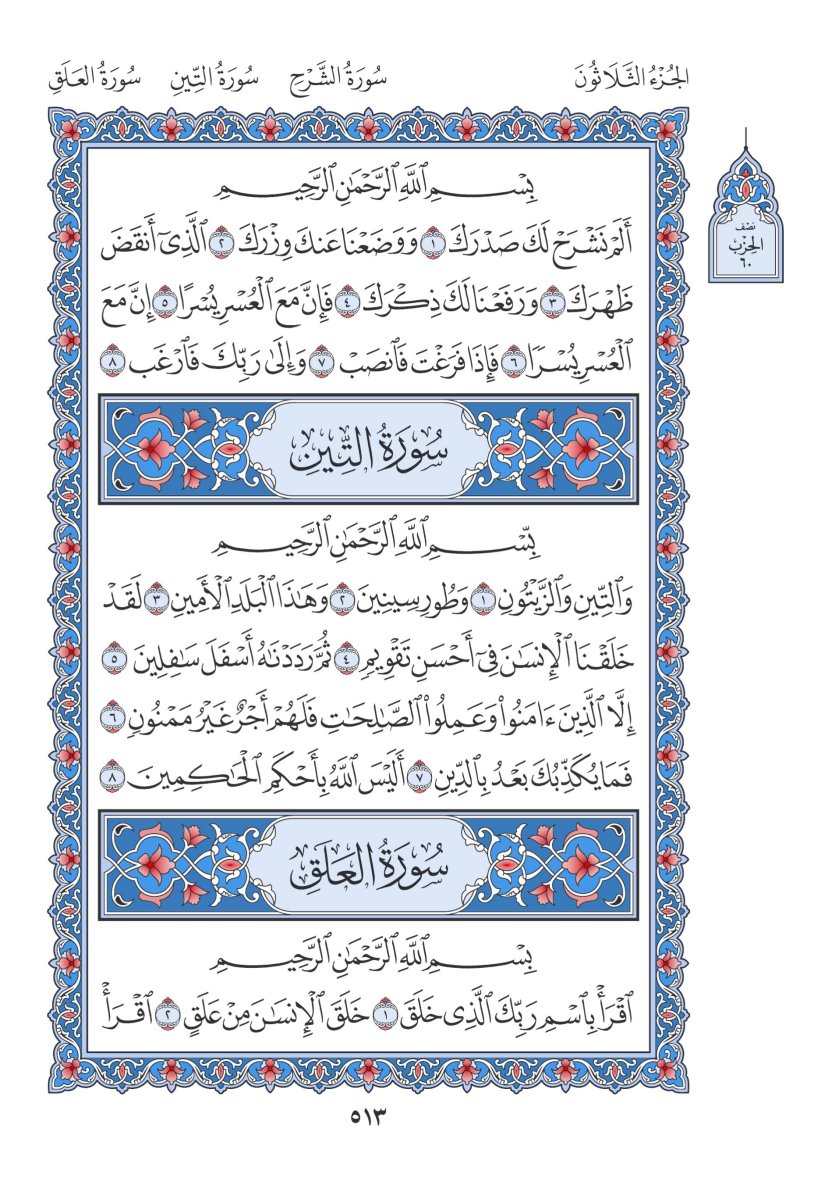 الجُزْءُ الثَّلَاثُونَ سُورَةُ الشَّرْحِ سُورَةُ التِّينِ سُورَةُ العَلَقِ
نصْف
الحِزْب
٦٠
بِسْمِ ٱللَّهِ ٱلرَّحْمَٰنِ ٱلرَّحِيمِ
أَلَمْ نَشْرَحْ لَكَ صَدْرَكَ ١ وَوَضَعْنَا عَنكَ وِزْرَكَ ٢ ٱلَّذِىٓ أَنقَضَ
ظَهْرَكَ ٣ وَرَفَعْنَا لَكَ ذِكْرَكَ ٤ فَإِنَّ مَعَ ٱلْعُسْرِ يُسْرًا ٥ إِنَّ مَعَ
ٱلْعُسْرِ يُسْرًا ٦ فَإِذَا فَرَغْتَ فَٱنصَبْ ٧ وَإِلَىٰ رَبِّكَ فَٱرْغَب ٨
سُورَةُ التِّينِ
بِّسْمِ ٱللَّهِ ٱلرَّحْمَٰنِ ٱلرَّحِيمِ
وَٱلتِّينِ وَٱلزَّيْتُونِ ١ وَطُورِ سِينِينَ ٢ وَهَٰذَا ٱلْبَلَدِ ٱلْأَمِينِ ٣ لَقَدْ
خَلَقْنَا ٱلْإِنسَٰنَ فِىٓ أَحْسَنِ تَقْوِيمٍ ٤ ثُمَّ رَدَدْنَٰهُ أَسْفَلَ سَٰفِلِينَ ٥
إِلَّا ٱلَّذِينَ ءَامَنُوا۟ وَعَمِلُوا۟ ٱلصَّٰلِحَٰتِ فَلَهُمْ أَجْرٌ غَيْرُ مَمْنُونٍ ٦
فَمَا يُكَذِّبُكَ بَعْدُ بِٱلدِّينِ ٧ أَلَيْسَ ٱللَّهُ بِأَحْكَمِ ٱلْحَٰكِمِينَ ٨
سُورَةُ العَلَقِ
بِسْمِ ٱللَّهِ ٱلرَّحْمَٰنِ ٱلرَّحِيمِ
ٱقْرَأْ بِٱسْمِ رَبِّكَ ٱلَّذِى خَلَقَ ١ خَلَقَ ٱلْإِنسَٰنَ مِنْ عَلَقٍ ٢ ٱقْرَأْ
٥١٣